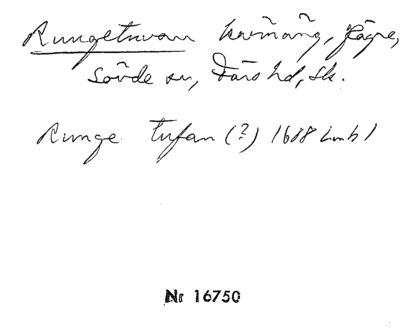 Rungetuvan kringäng, Jägre,
Sövde sn, Färs hd, Sk.
Runge Tufan (?) 1688 Lmb 1
Nr 16750